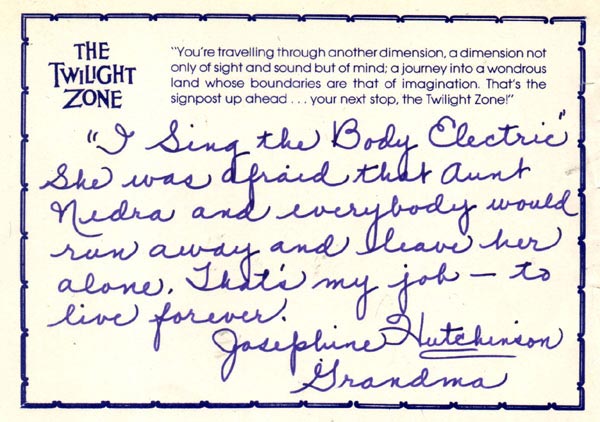 THE
TWILIGHT
ZONE
"You're travelling through another dimension, a dimension not
only of sight and sound but of mind; a journey into a wondrous
land whose boundaries are that of imagination. That's the
signpost up ahead . . . your next stop, the Twilight Zone!"
"I Sing the Body Electric"
She was afraid that Aunt
Nedra and everybody would
run away and leave her
alone. That's my job — to
live forever.
Josephine Hutchinson
Grandma